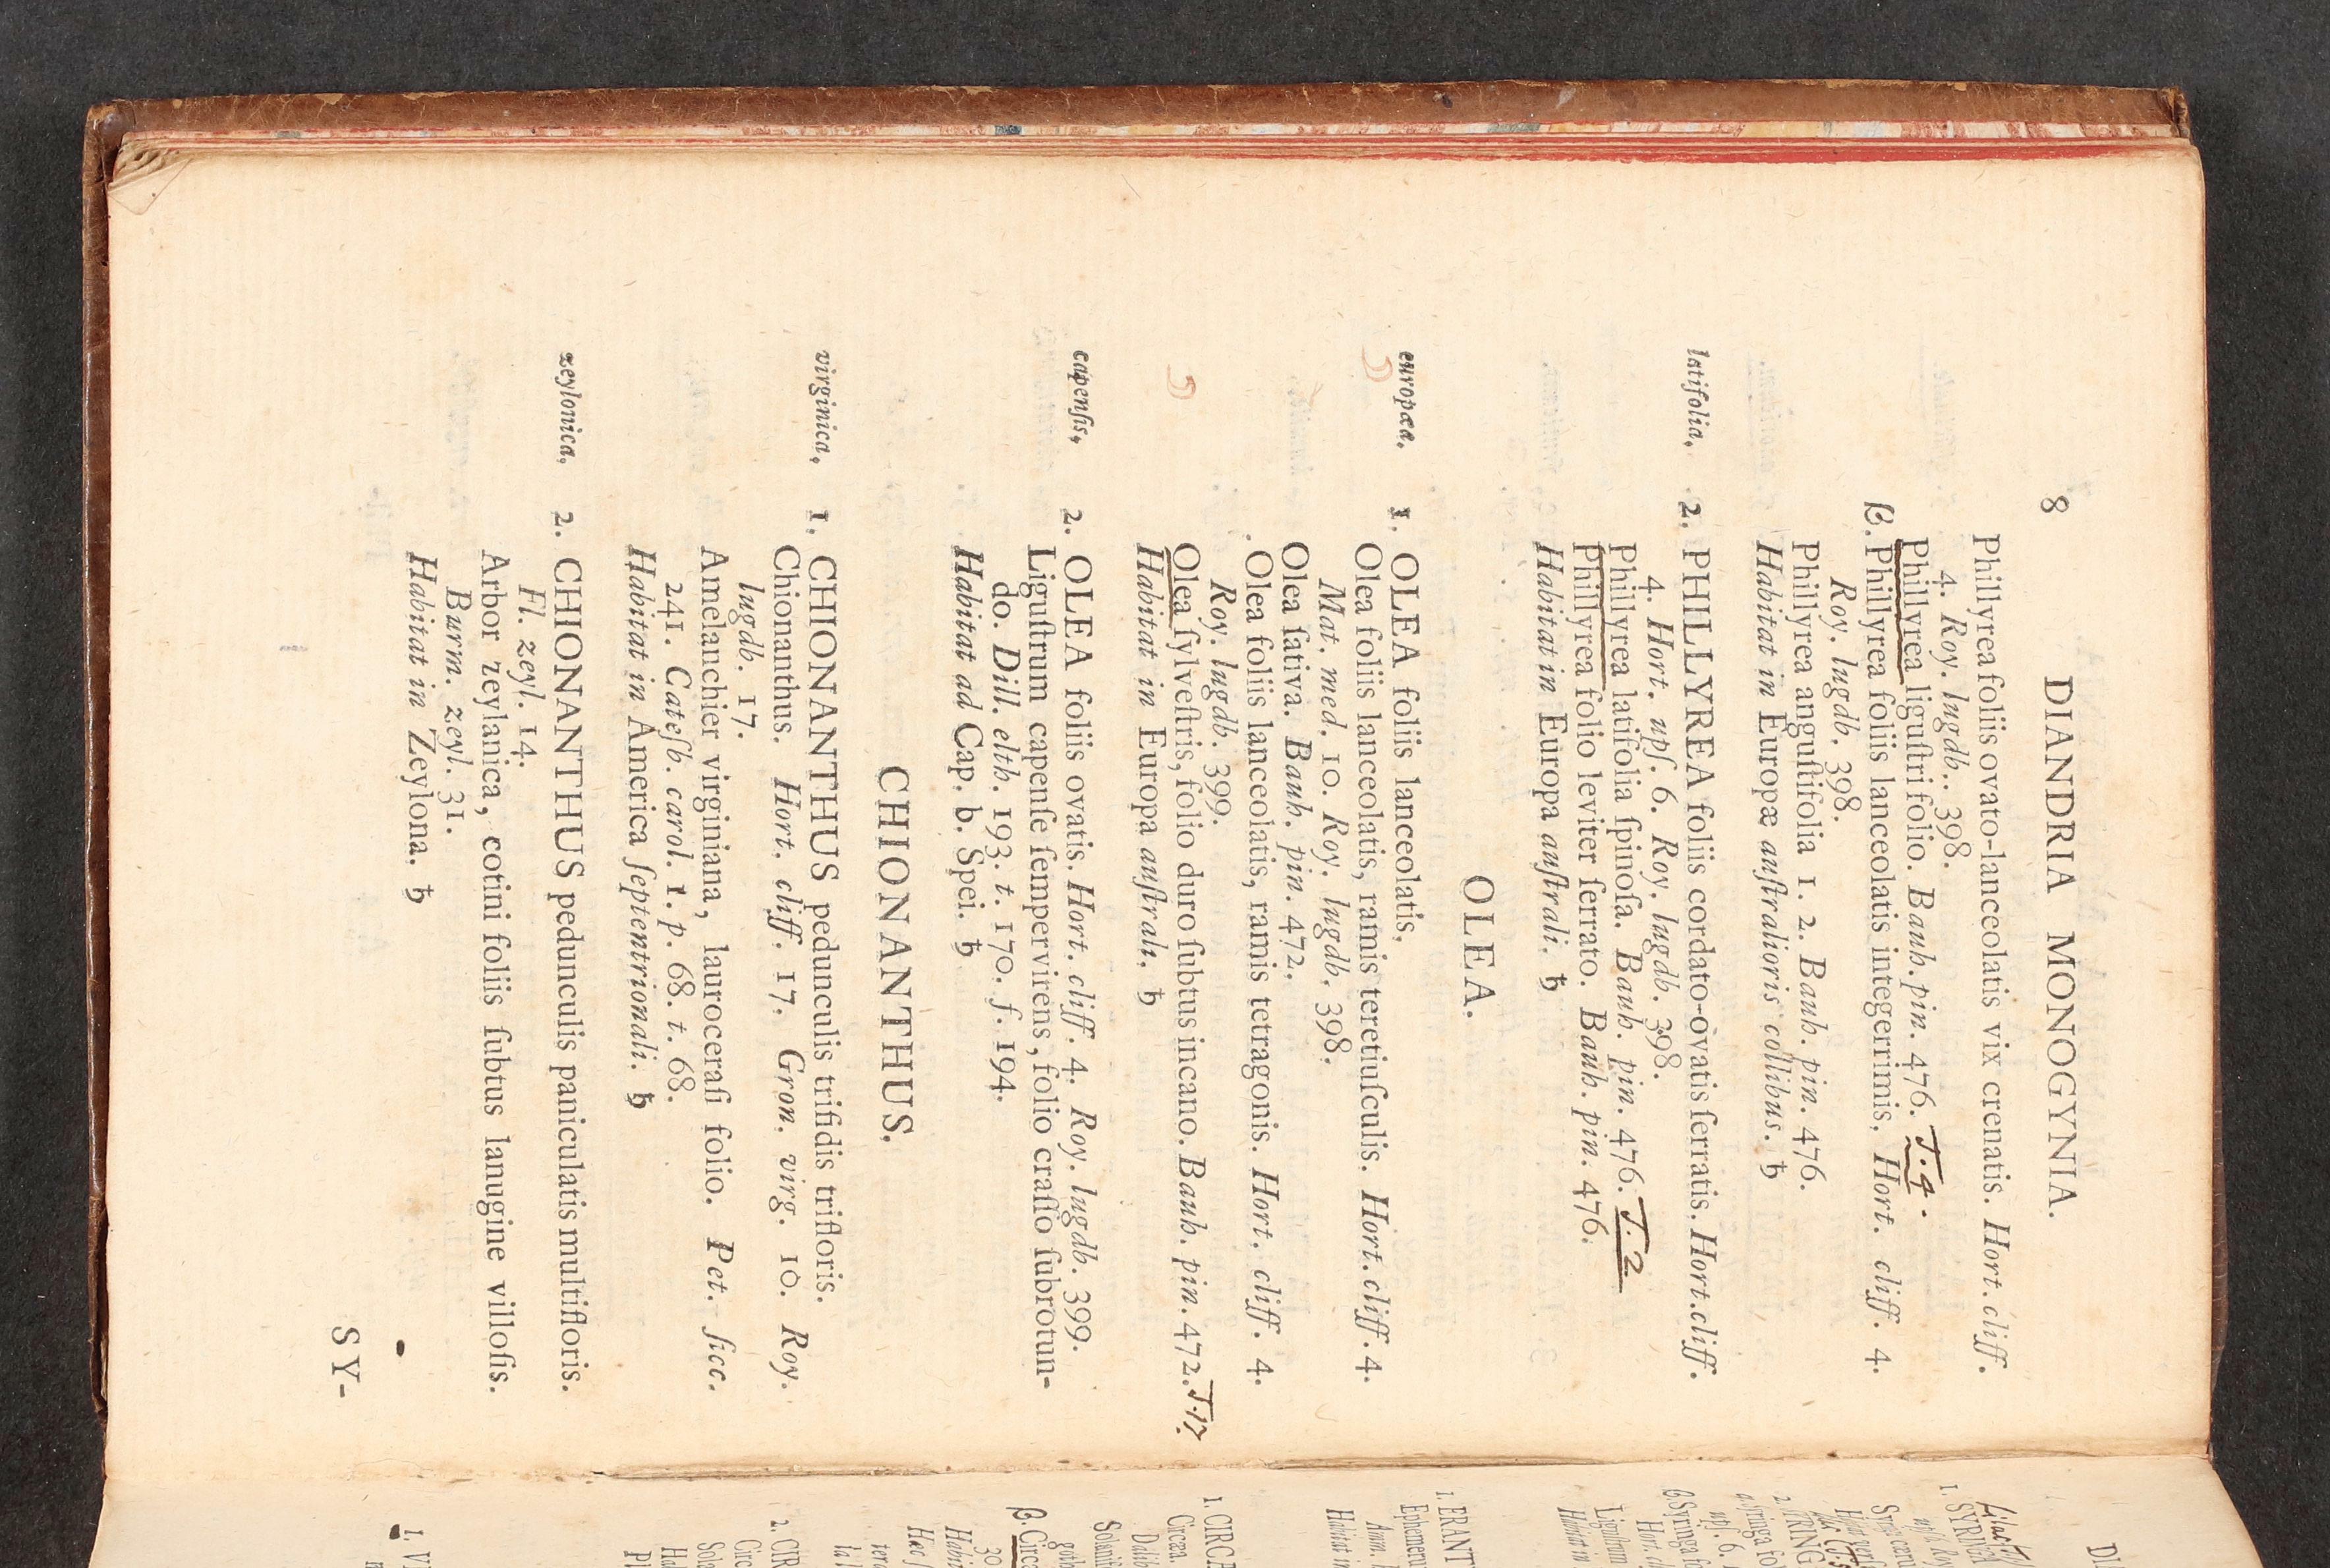 8 DIANDRIA MONOGYNIA.
Phillyrea foliis ovato-lanceolatis vix crenatis. Hort. cliff.
4. Roy. lugdb. 398.
Phillyrea liguſtri folio. Bauh. pin. 476. T. 4.
β. Phillyrea foliis lanceolatis integerrimis. Hort. cliff. 4.
Roy. lugdb. 398.
Phillyrea anguſtifolia 1. 2. Bauh. pin. 476.
Habitat in Europæ auſtralioris collibus. ♄
latifolia. 2. PHILLYREA foliis cordato-ovatis ſerratis. Hort. cliff.
4. Hort. upſ. 6. Roy. lugdb. 398.
Phillyrea latifolia ſpinoſa. Bauh. pin. 476. T. 2
Phillyrea folio leviter ſerrato. Bauh. pin. 476.
Habitat in Europa auſtrali. ♄
OLEA.
europæa. 1. OLEA foliis lanceolatis.
Olea foliis lanceolatis, ramis teretiuſculis. Hort. cliff. 4.
Mat. med. 10. Roy. lugdb. 398.
Olea ſativa. Bauh. pin. 472.
Olea foliis lanceolatis, ramis tetragonis. Hort. cliff. 4.
Roy. lugdb. 399.
Olea ſylveſtris, folio duro ſubtus incano. Bauh. pin. 472. T. 17.
Habitat in Europa auſtrali. ♄
capenſis. 2. OLEA foliis ovatis. Hort. cliff. 4. Roy. lugdb. 399.
Liguſtrum capenſe ſempervirens, folio craſſo ſubrotun-
do. Dill. elth. 193. t. 170. f. 194.
Habitat ad Cap. b. Spei. ♄
CHIONANTHUS.
virginica. 1. CHIONANTHUS pedunculis trifidis trifloris.
Chionanthus. Hort. cliff. 17. Gron. virg. 10. Roy.
lugdb. 17.
Amelanchier virginiana, lauroceraſi folio. Pet. ſicc.
241. Cateſb. carol. 1. p. 68. t. 68.
Habitat in America ſeptentrionali. ♄
zeylonica. 2. CHIONANTHUS pedunculis paniculatis multifloris.
Fl. zeyl. 14.
Arbor zeylanica, cotini foliis ſubtus lanugine villoſis.
Burm. zeyl. 31.
Habitat in Zeylona. ♄
SY-
1. SYRINGA
1. ERANT
Ephemerum
Habitat in
1. CIRCÆA
Circæa.
β. Circæ
2. CIR
1. V